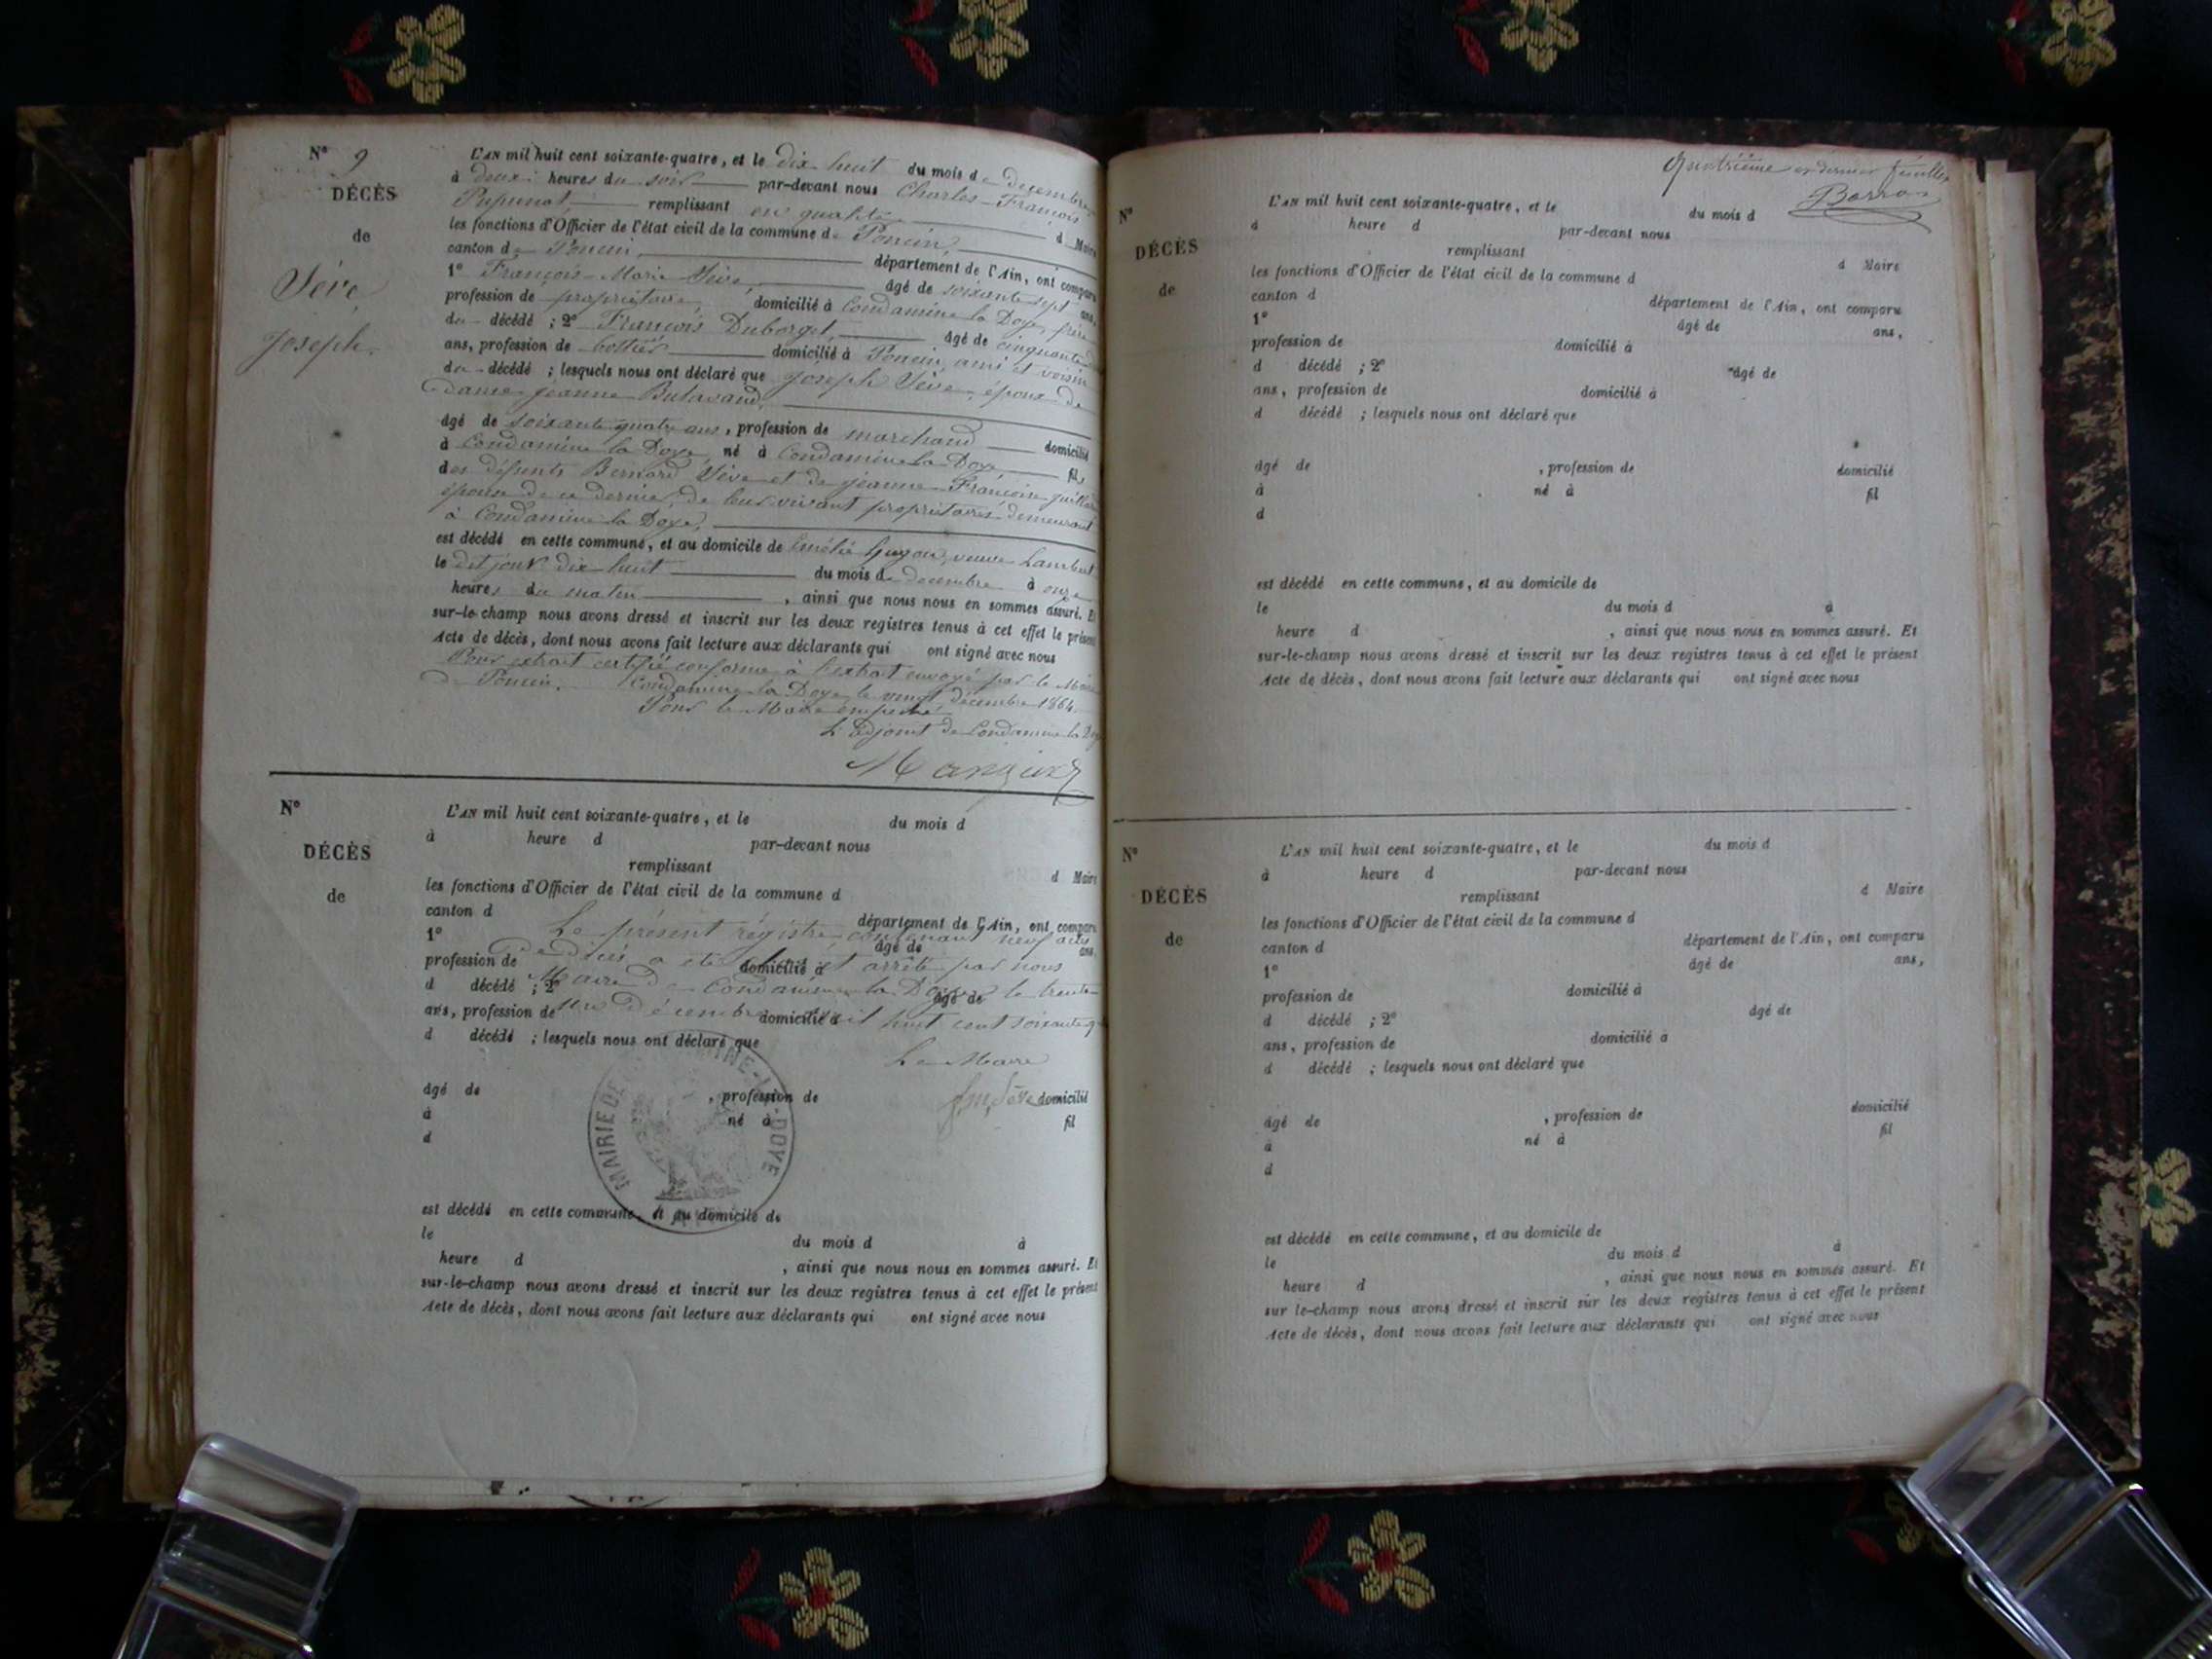 N° 9
DÉCÈS
de
Sève
Joseph.
L'AN mil huit cent soixante-quatre, et le dix huit du mois de Decembre
à deux heures du soir par-devant nous Charles-François
remplissant en qualité d Maire
les fonctions d'Officier de l'état civil de la commune de Poncin
canton de Poncin, département de l'Ain, ont comparu
1° François-Marie Sève, âgé de soixante sept ans,
profession de propriétaire, domicilié à Condamine la Doye, frère
du décédé ; 2° François Duborget, âgé de cinquante
ans, profession de bottier domicilié à Poncin, ami et voisin
du décédé ; lesquels nous ont déclaré que Joseph Sève, époux de
Dame Jeanne Butavand,
âgé de soixante quatre ans, profession de marchand domicilié
à Condamine la Doye né à Condamine la Doye fils
des défunts Bernard Sève et de Jeanne Françoise
épouse de ce dernier, de leur vivant propriétaires demeurant
à Condamine la Doye,
est décédé en cette commune, et au domicile de Guyon, veuve Lambert
le dit jour dix huit du mois de decembre à onze
heures du matin, ainsi que nous nous en sommes assuré. Et
sur-le-champ nous avons dressé et inscrit sur les deux registres tenus à cet effet le présent
Acte de décès, dont nous avons fait lecture aux déclarants qui ont signé avec nous
Pour extrait certifié conforme à l'extrait envoyé par le Maire
de Poncin. Condamine la Doye, le vingt decembre 1864.
Pour le Maire empeché,
L'adjoint de Condamine la Doye
N°
DÉCÈS
de
L'AN mil huit cent soixante-quatre, et le du mois d
à heure d par-devant nous
remplissant d Maire
les fonctions d'Officier de l'état civil de la commune d
canton d département de l'Ain, ont comparu
1° âgé de ans,
profession de domicilié à
d décédé ; 2° âgé de
ans, profession de domicilié à
d décédé ; lesquels nous ont déclaré que
Le présent régistre contenant neuf actes
de décès a été clos et arrêté par nous
Maire de Condamine la Doye le trente
un décembre mil huit cent soixante q
Le Maire
Sève
MAIRIE DE CONDAMINE-LA-DOYE
AIN
âgé de , profession de domicilié
à né à fil
d
est décédé en cette commune, et au domicile de
le du mois d à
heure d , ainsi que nous nous en sommes assuré. Et
sur-le-champ nous avons dressé et inscrit sur les deux registres tenus à cet effet le présent
Acte de décès, dont nous avons fait lecture aux déclarants qui ont signé avec nous
Quatrième et dernier feuillet
Barron
N°
DÉCÈS
de
L'AN mil huit cent soixante-quatre, et le du mois d
à heure d par-devant nous
remplissant d Maire
les fonctions d'Officier de l'état civil de la commune d
canton d département de l'Ain, ont comparu
1° âgé de ans,
profession de domicilié à
d décédé ; 2° âgé de
ans, profession de domicilié à
d décédé ; lesquels nous ont déclaré que
âgé de , profession de domicilié
à né à fil
d
est décédé en cette commune, et au domicile de
le du mois d à
heure d , ainsi que nous nous en sommes assuré. Et
sur-le-champ nous avons dressé et inscrit sur les deux registres tenus à cet effet le présent
Acte de décès, dont nous avons fait lecture aux déclarants qui ont signé avec nous
N°
DÉCÈS
de
L'AN mil huit cent soixante-quatre, et le du mois d
à heure d par-devant nous
remplissant d Maire
les fonctions d'Officier de l'état civil de la commune d
canton d département de l'Ain, ont comparu
1° âgé de ans,
profession de domicilié à
d décédé ; 2° âgé de
ans, profession de domicilié à
d décédé ; lesquels nous ont déclaré que
âgé de , profession de domicilié
à né à fil
d
est décédé en cette commune, et au domicile de
le du mois d à
heure d , ainsi que nous nous en sommes assuré. Et
sur le-champ nous avons dressé et inscrit sur les deux registres tenus à cet effet le présent
Acte de décès, dont nous avons fait lecture aux déclarants qui ont signé avec nous